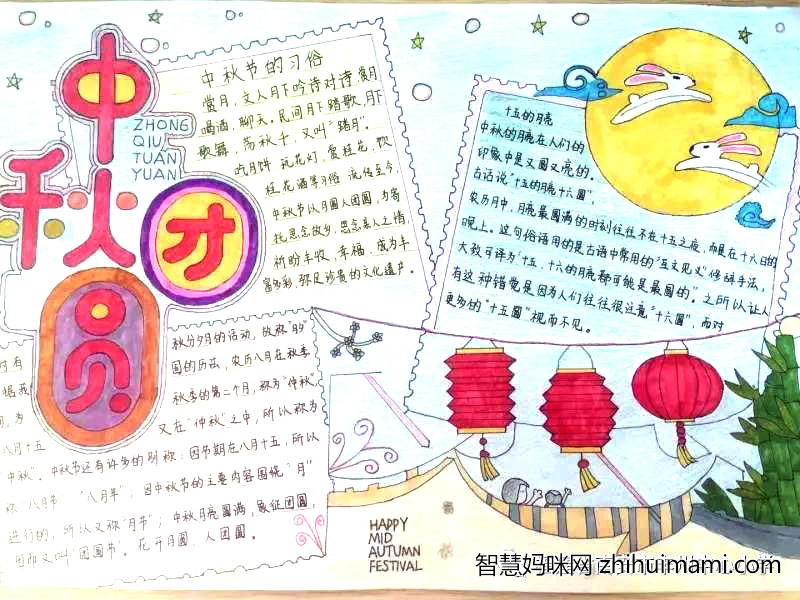 中秋团圆
ZHONG
QIU
TUAN
YUAN
中秋节的习俗
赏月,文人月下吟诗对诗赏月
喝酒,聊天。民间月下踏歌,月下
歌舞,荡秋千,又叫"踏月"。
吃月饼 玩花灯,赏桂花,饮
桂花酒等习俗 流传至今,
中秋节以月圆人团圆,为寄
托思念故乡,思念亲人之情,
祈盼丰收、幸福,成为丰
富多彩,弥足珍贵的文化遗产。
十五的月亮
中秋的月亮在人们的
印象中是又圆又亮的。
古话说"十五的月亮十六圆",
农历月中,月亮最圆满的时刻往往不在十五之夜,而是在十六日的
晚上。这句俗语用的是古语中常用的"互文见义"修辞手法,
大致可译为"十五、十六的月亮都可能是最圆的"。之所以让人
有这种错觉是因为人们往往很注意"十六圆",而对
更多的"十五圆"视而不见。
秋分夕月的活动,故称"月夕"
时有
国的历法,农历八月在秋季
根据我
秋季的第二个月,称为"仲秋"
为
又在"仲秋"之中,所以称为
八月十五
中秋"。中秋节还有许多的别称:因节期在八月十五,所以
称"八月节""八月半";因中秋节的主要内容围绕"月"
进行的,所以又称"月节";中秋月亮圆满,象征团圆,
因而又叫"团圆节"。花开月圆,人团圆。
HAPPY
MID
AUTUMN
FESTIVAL
智慧妈咪网 zhihuimami.com